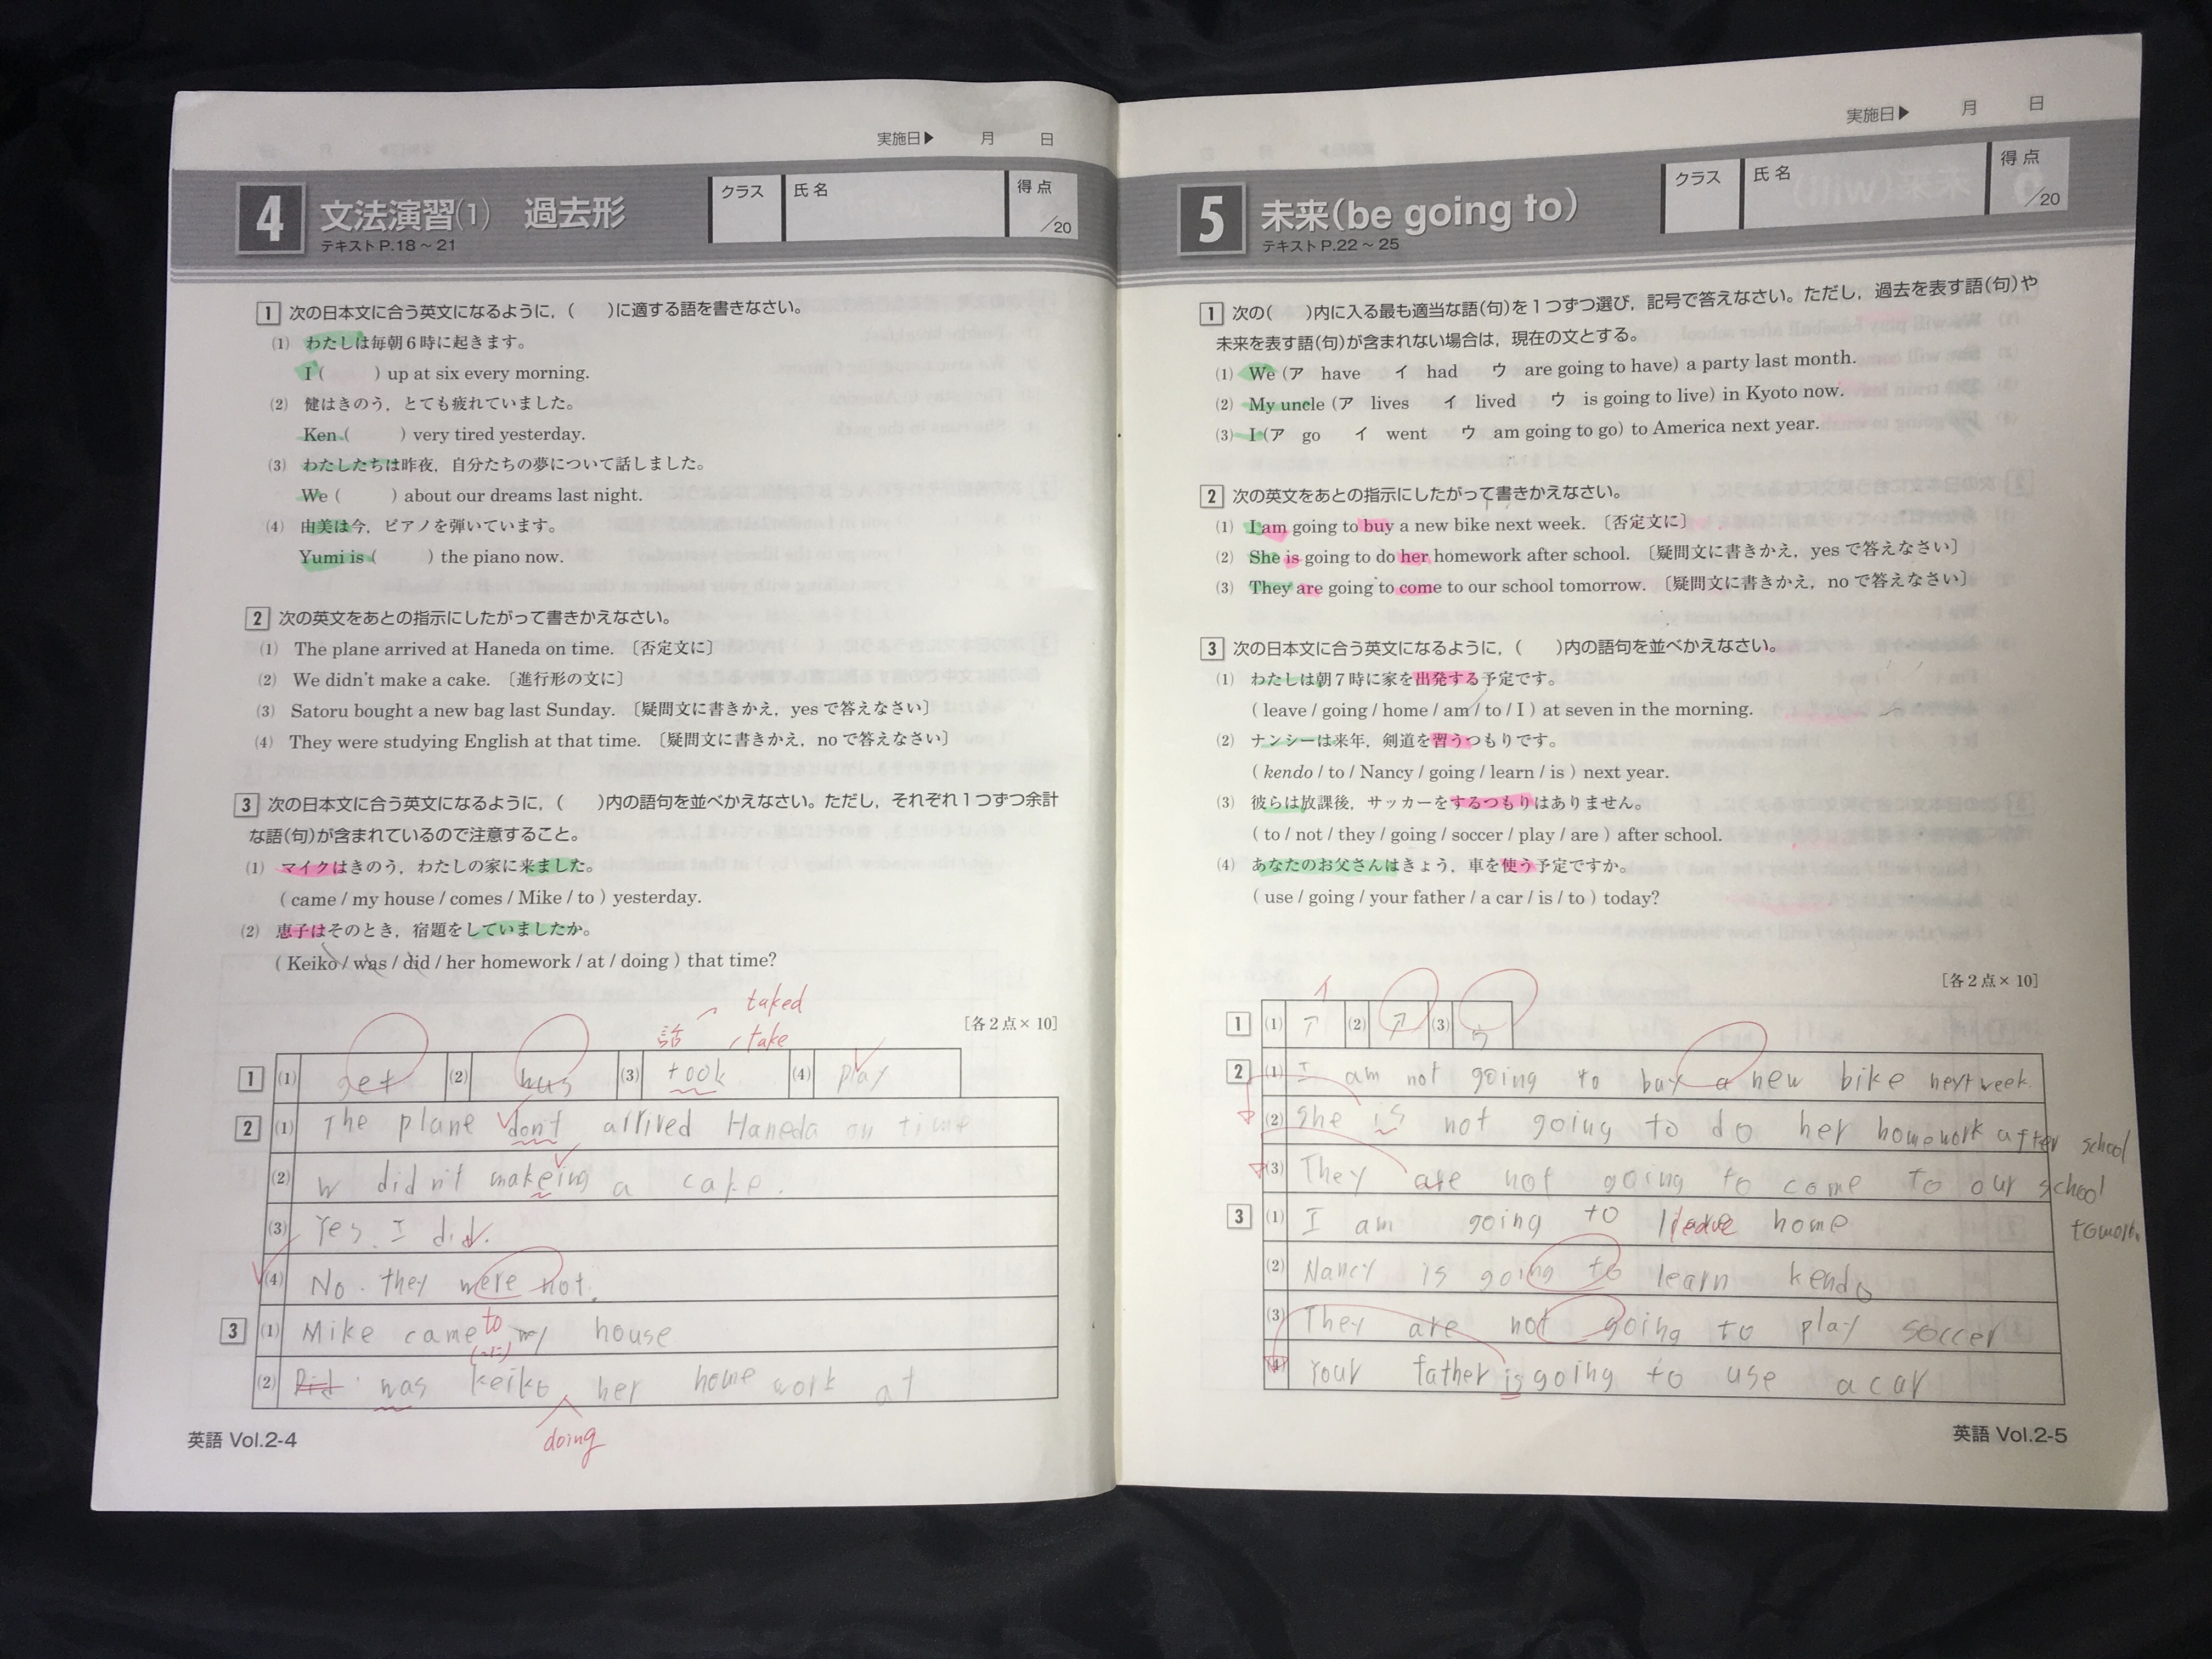 実施日▶ 月 日
4 文法演習(1) 過去形
テキストP.18～21
クラス 氏名 得点 /20
1 次の日本文に合う英文になるように，( )に適する語を書きなさい。
(1) わたしは毎朝6時に起きます。
I ( ) up at six every morning.
(2) 健はきのう，とても疲れていました。
Ken ( ) very tired yesterday.
(3) わたしたちは昨夜，自分たちの夢について話しました。
We ( ) about our dreams last night.
(4) 由美は今，ピアノを弾いています。
Yumi is ( ) the piano now.
2 次の英文をあとの指示にしたがって書きかえなさい。
(1) The plane arrived at Haneda on time. 〔否定文に〕
(2) We didn't make a cake. 〔進行形の文に〕
(3) Satoru bought a new bag last Sunday. 〔疑問文に書きかえ，yesで答えなさい〕
(4) They were studying English at that time. 〔疑問文に書きかえ，noで答えなさい〕
3 次の日本文に合う英文になるように，( )内の語句を並べかえなさい。ただし，それぞれ1つずつ余計
な語(句)が含まれているので注意すること。
(1) マイクはきのう，わたしの家に来ました。
( came / my house / comes / Mike / to ) yesterday.
(2) 恵子はそのとき，宿題をしていましたか。
( Keiko / was / did / her homework / at / doing ) that time?
taked
話 take
[各2点×10]
1 (1) get (2) was (3) took (4) play
2 (1) The plane don't arrived Haneda on time
(2) w didn't makeing a cake.
(3) Yes. I did.
(4) No. they were not.
to
3 (1) Mike came my house
(2) Did was keiko her home work at
doing
英語 Vol.2-4
実施日▶ 月 日
5 未来(be going to)
テキストP.22～25
クラス 氏名 得点 /20
1 次の( )内に入る最も適当な語(句)を1つずつ選び，記号で答えなさい。ただし，過去を表す語(句)や
未来を表す語(句)が含まれない場合は，現在の文とする。
(1) We (ア have イ had ウ are going to have) a party last month.
(2) My uncle (ア lives イ lived ウ is going to live) in Kyoto now.
(3) I (ア go イ went ウ am going to go) to America next year.
2 次の英文をあとの指示にしたがって書きかえなさい。
(1) I am going to buy a new bike next week. 〔否定文に〕
(2) She is going to do her homework after school. 〔疑問文に書きかえ，yesで答えなさい〕
(3) They are going to come to our school tomorrow. 〔疑問文に書きかえ，noで答えなさい〕
3 次の日本文に合う英文になるように，( )内の語句を並べかえなさい。
(1) わたしは朝7時に家を出発する予定です。
( leave / going / home / am / to / I ) at seven in the morning.
(2) ナンシーは来年，剣道を習うつもりです。
( kendo / to / Nancy / going / learn / is ) next year.
(3) 彼らは放課後，サッカーをするつもりはありません。
( to / not / they / going / soccer / play / are ) after school.
(4) あなたのお父さんはきょう，車を使う予定ですか。
( use / going / your father / a car / is / to ) today?
[各2点×10]
イ
1 (1) ア (2) ア (3) ウ
2 (1) I am not going to buy a new bike next week.
(2) She is not going to do her homework after school
(3) They are not going to come to our school
3 (1) I am going to leave home
(2) Nancy is going to learn kendo
(3) They are not going to play soccer
(4) Your father is going to use a car
英語 Vol.2-5